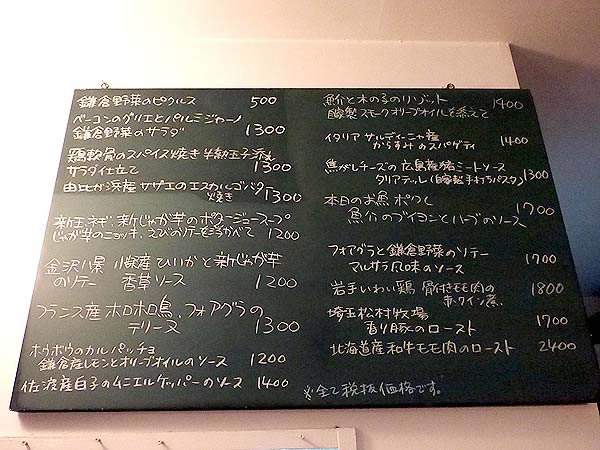 鎌倉野菜のピクルス 500
ベーコンのグリエとパルミジャーノ
鎌倉野菜のサラダ 1300
鶏軟骨のスパイス焼き 半熟玉子添え
サラダ仕立て 1300
由比ガ浜産 サザエのエスカルゴバター
焼き 1300
新玉ネギ 新じゃが芋のポタージュスープ
じゃが芋のニョッキ、えびのソテーを浮かべて 1200
金沢八景 小柴産ひいかと新じゃが芋
のソテー 香草ソース 1200
フランス産ホロホロ鳥、フォアグラの
テリーヌ 1300
ホウボウのカルパッチョ
鎌倉産レモンとオリーブオイルのソース 1200
佐渡産白子のムニエル ケッパーのソース 1400
魚介と木の子のリゾット 1400
自家製スモークオリーブオイルを添えて
イタリア サルディーニャ産
からすみのスパゲティ 1400
焦がしチーズの広島産猪ミートソース
タリアテッレ(自家製手打ちパスタ) 1300
本日のお魚 ポワレ
魚介のブイヨンとハーブのソース 1700
フォアグラと鎌倉野菜のソテー
マルサラ風味のソース 1700
岩手いわい鶏 骨付きモモ肉の
赤ワイン煮 1800
埼玉松村牧場
香り豚のロースト 1700
北海道産和牛モモ肉のロースト 2400
※全て税抜価格です。